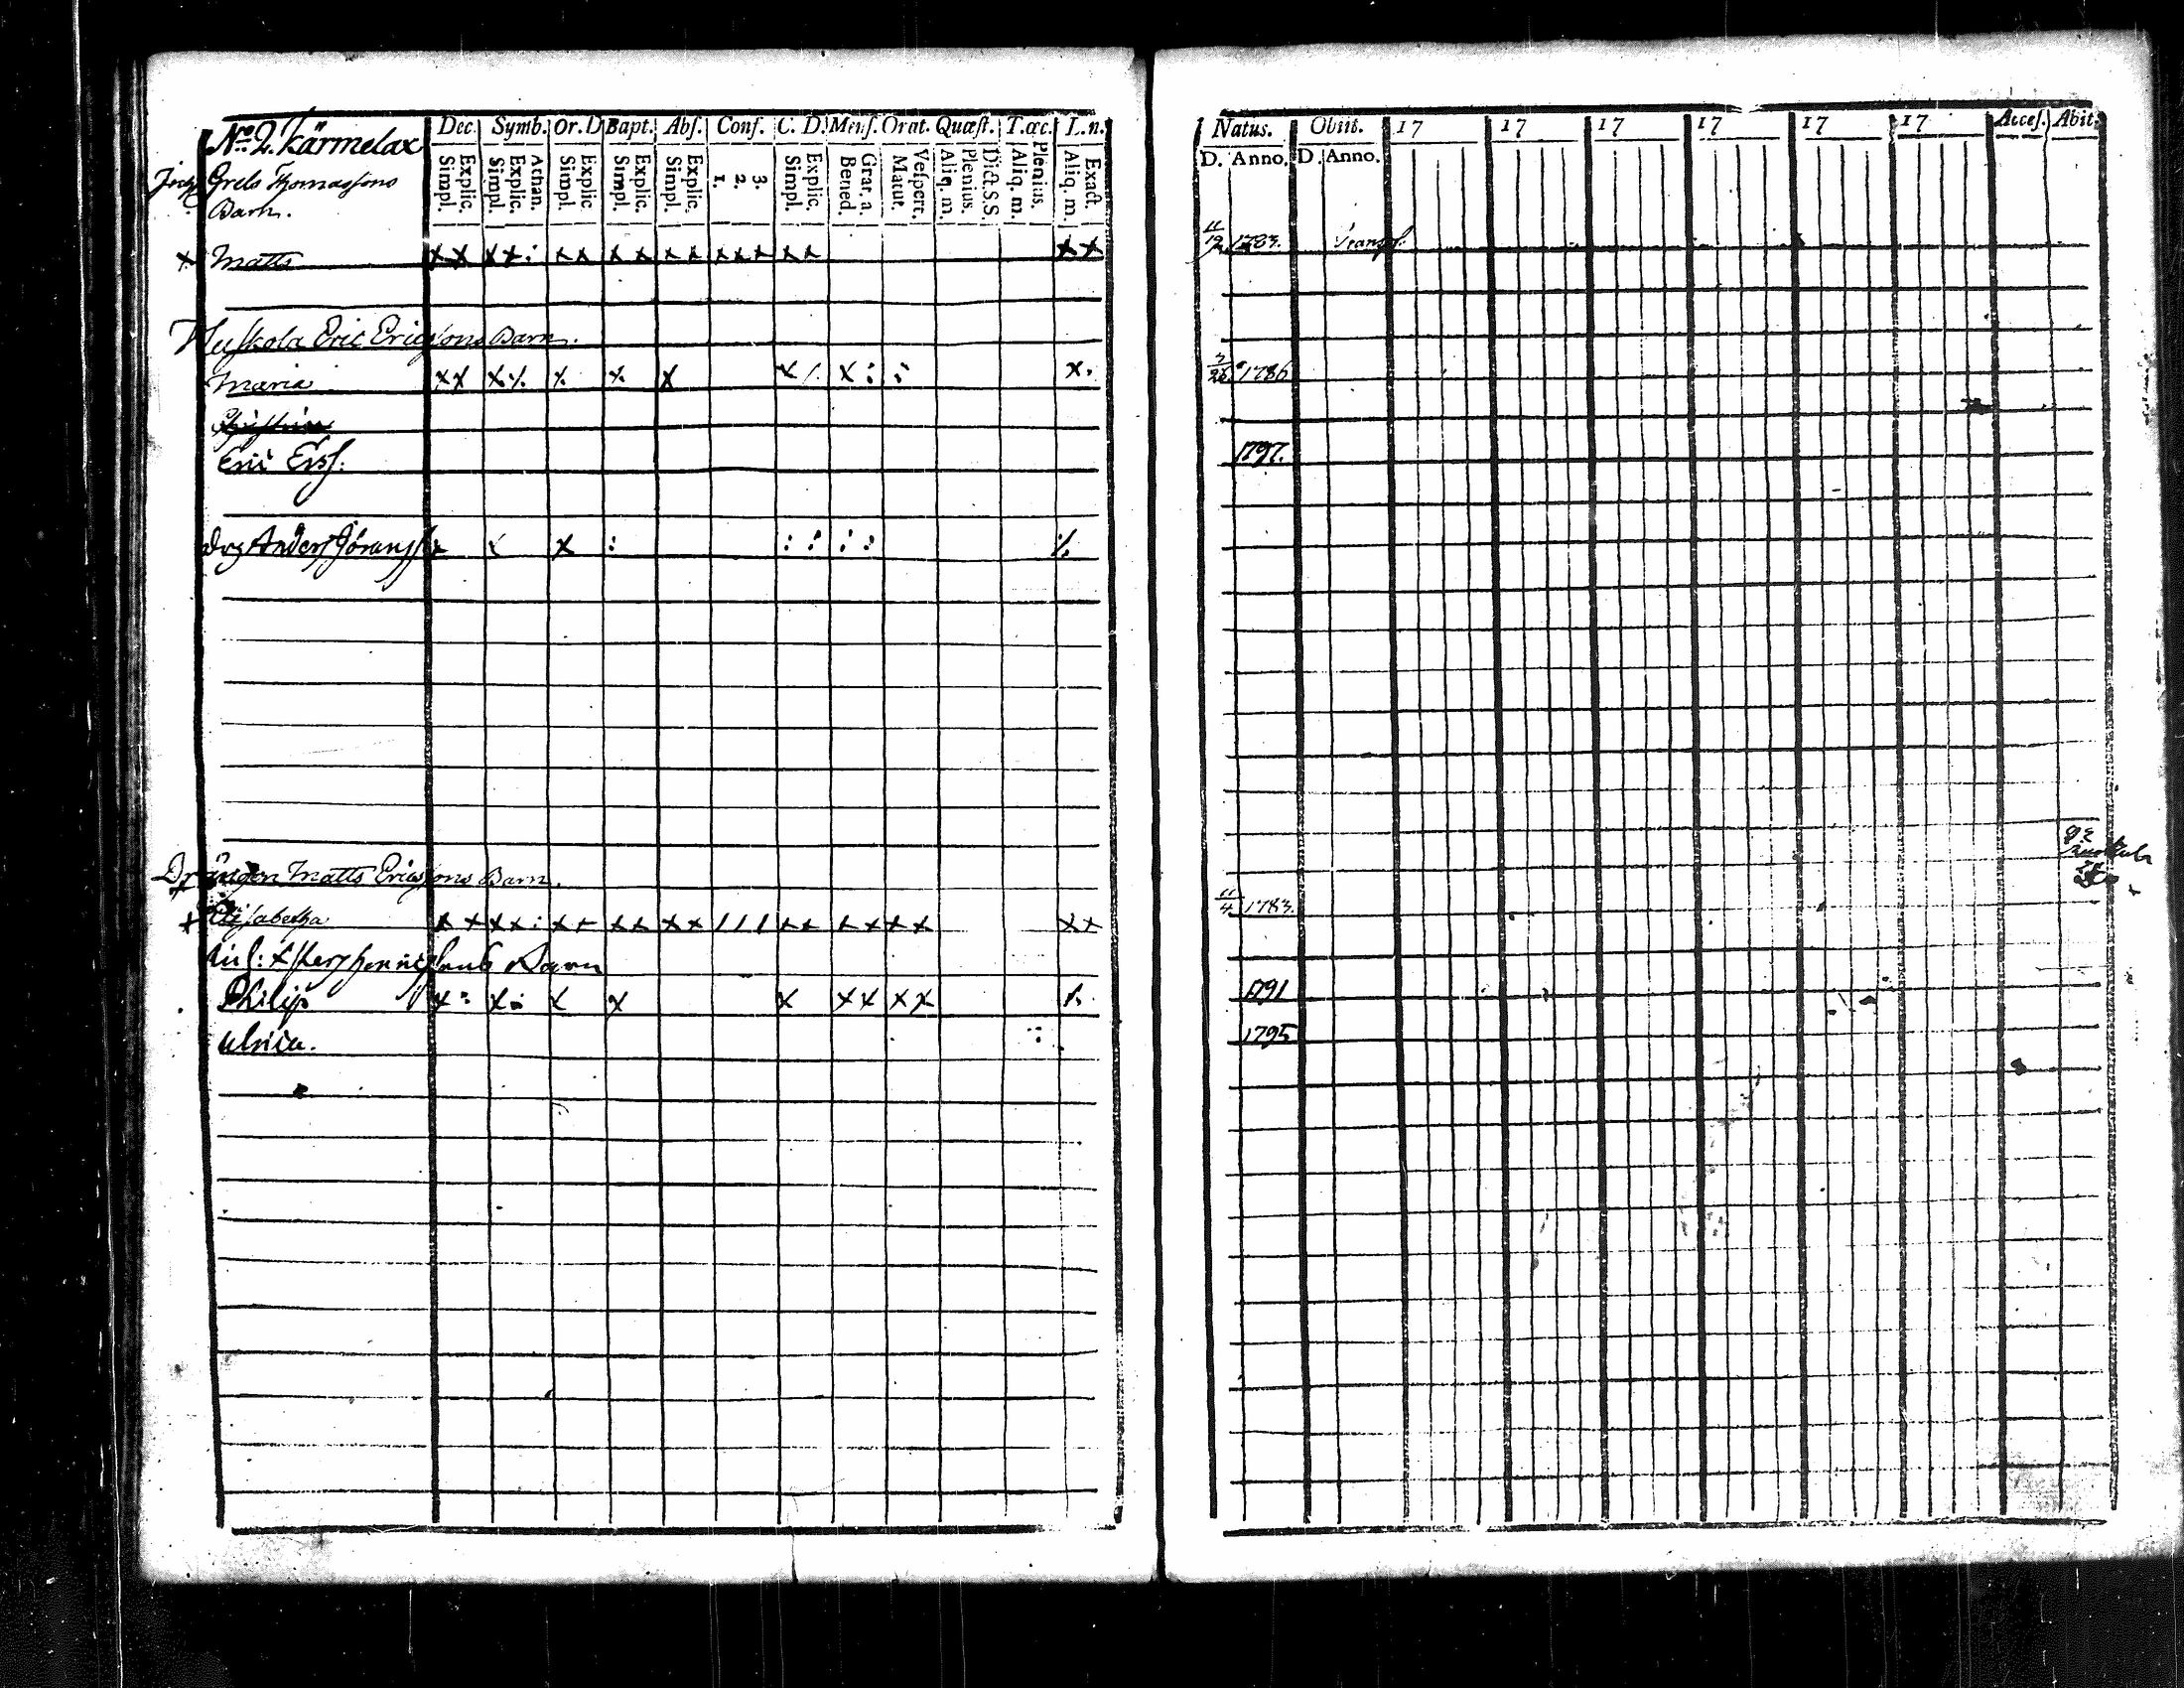 No 2. Kärmelax Dec. Symb. Or. D Bapt. Abſ. Conf. C. D. Menſ. Orat. Quæſt. T. œc. L. n.
Simpl. Explic. Simpl. Explic. Athan. Simpl. Explic. Simpl. Explic. Simpl. Explic. 1. 2. 3. Simpl. Explic. Bened. Grat. a. Matut. Veſpert. Aliq. m. Plenius. Dict. S.S. Aliq. m. Plenius. Aliq. m. Exact.
Grels Thomaſsons
Barn.
x Matts x x x x : x x x x x x x x x x x x x
Eric Ericſsons Barn.
Maria x x x ⁒ x x x x : :  x .
Eric Ersſ.
Drg Anders Göransſ x x x : : : : : ⁒
Drängen Matts Ericſsons Barn.
x Eliſabetha x x x x : x x x x x x / / / x x x x x x x x
Barn
Philip x : x : x x x x x x x
Ulrica.
Natus. Obiit. 17 17 17 17 17 17 Acceſ. Abit.
D. Anno. D. Anno.
11/12 1783. Transſ.
3/26 1786
1797.
11/4 1783.
1791
1795